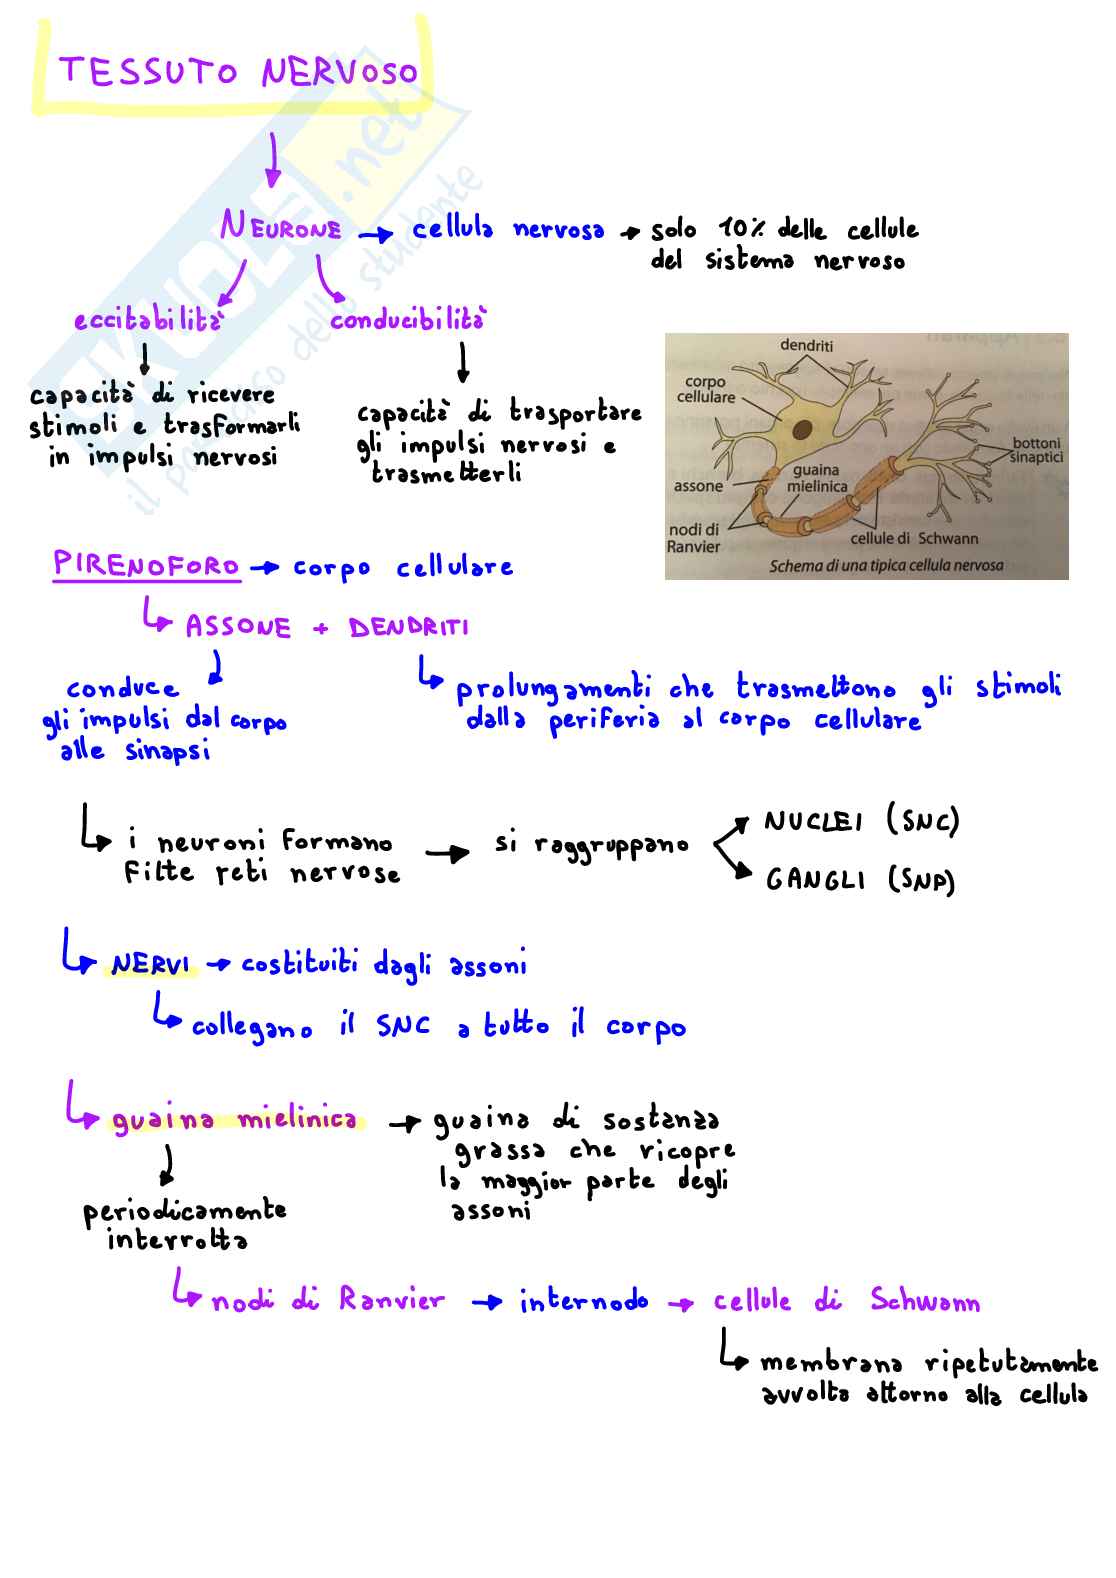 TESSUTO NERVOSO
SKUOLA.net
il paradiso dello studente
NEURONE → cellula nervosa → solo 10% delle cellule
del sistema nervoso
eccitabilità
conducibilità
capacità di ricevere
stimoli e trasformarli
in impulsi nervosi
capacità di trasportare
gli impulsi nervosi e
trasmetterli
dendriti
corpo
cellulare
bottoni
sinaptici
assone
guaina
mielinica
nodi di
Ranvier
cellule di Schwann
Schema di una tipica cellula nervosa
PIRENOFORO → corpo cellulare
ASSONE + DENDRITI
conduce
gli impulsi dal corpo
alle sinapsi
prolungamenti che trasmettono gli stimoli
dalla periferia al corpo cellulare
i neuroni formano
fitte reti nervose
→ si raggruppano
NUCLEI (SNC)
GANGLI (SNP)
NERVI → costituiti dagli assoni
collegano il SNC a tutto il corpo
guaina mielinica → guaina di sostanza
grassa che ricopre
la maggior parte degli
assoni
periodicamente
interrotta
nodi di Ranvier → internodo → cellule di Schwann
membrana ripetutamente
avvolta attorno alla cellula